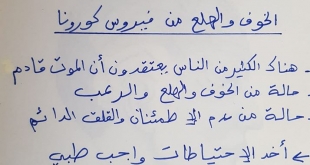 الخوف والهلع من فيروس كورونا
- هناك الكثير من الناس يعتقدون أن الموت قادم
- حالة من الخوف والهلع والرعب
- حالة من عدم الإطمئنان والقلق الدائم
أخد الإحتياطات واجب طبي